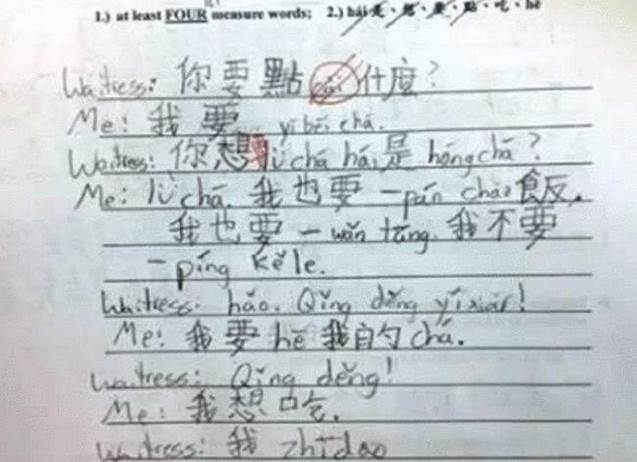 1.) at least FOUR measure words; 2.) hái 是、想、要、點、吃、hē
Waitress: 你要點 cài 什麼?
Me: 我要 yì bēi chá.
Waitress: 你想 lǜ chá hái 是 hóng chá?
Me: lǜ chá. 我也要一pán chǎo 飯.
我也要一wǎn tāng. 我不要
一píng kělè.
Waitress: hǎo. Qǐng děng yíxiàr!
Me: 我要 hē 我的 chá.
Waitress: Qǐng děng!
Me: 我想吃.
Waitress: 我 zhīdao